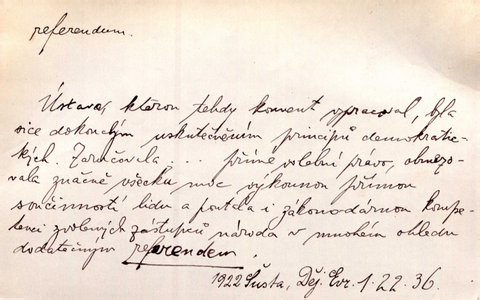 referendum.
Ústava, kterou tehdy konvent vypracoval, byla
sice dokonalým uskutečněním principů demokratic-
kých. Zaručovala ... přímé volební právo, obmezo-
vala značně všecku moc výkonnou přímou
součinností lidu a poutala i zákonodárnou kompe-
tenci zvolených zástupců národa v mnohém ohledu
dodatečným referendem.
1922 Šusta, Děj. Evr. 1. 22. 36.